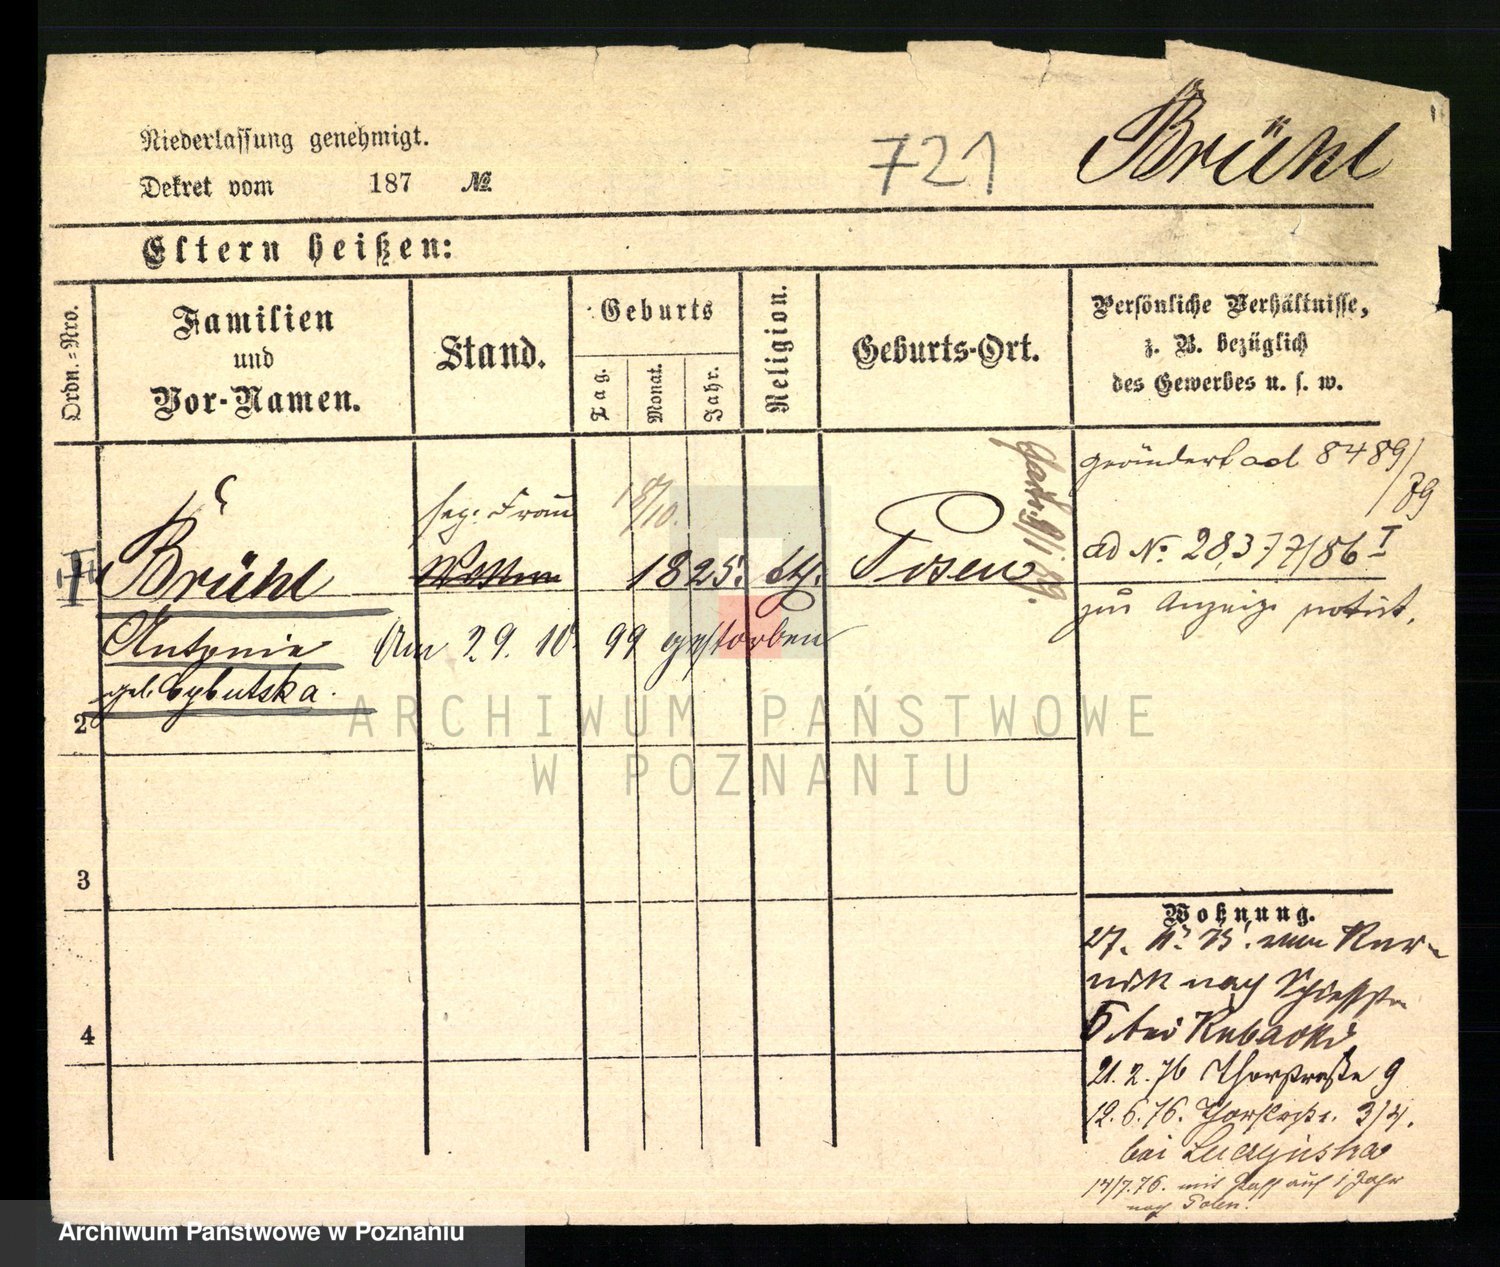 Niederlassung genehmigt.
Dekret vom 187 №
721
Brühl
Eltern heißen:
Ordn.-Nro.
Familien
und
Vor-Namen.
Stand.
Geburts
Tag.
Monat.
Jahr.
Religion.
Geburts-Ort.
Persönliche Verhältnisse,
z. B. bezüglich
des Gewerbes u. s. w.
geändert ad 8489/
79
sep. Frau
18/10.
Brühl
1825.
Posen
ad No. 28,377/86 I
zur Anzeige notirt.
Antonie
Am 29. 10. 99 gestorben
geb. Cybulska.
2
ARCHIWUM PAŃSTWOWE
W POZNANIU
3
Wohnung.
27. 11. 75. von Kur-
nik nach Schießstr.
4
5 bei Kubacki
21.2.76 Thorstraße 9
12.6.76. Thorstraße 3/4.
bei Luczynska
14/7.76. mit Paß auf 1 Jahr
nach Polen.
Archiwum Państwowe w Poznaniu